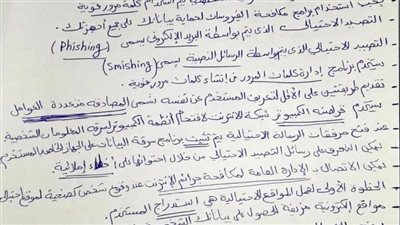 يجب استخدام برامج مكافحة الفيروسات لحماية بياناتك على جميع أجهزتك.
التصيد الاحتيالي الذي يتم بواسطة البريد الإلكتروني يسمى (Phishing)
التصيد الاحتيالي الذي يتم بواسطة الرسائل النصية يسمى (smishing)
يستخدم برنامج إدارة كلمات المرور في إنشاء كلمات مرور قوية.
تقديم طريقتين على الأقل لتعريف المستخدم عن نفسه تسمى المصادقة متعددة العوامل
يستخدم قراصنة الكمبيوتر شبكة الإنترنت لاقتحام أنظمة الكمبيوتر لسرقة المعلومات الشخصية
عند فتح مرفقات الرسالة الاحتيالية يتم تثبيت برنامج سرقة البيانات على الجهاز الخاص بالمستخدم
يمكن التعرف على رسائل التصيد الاحتيالي من خلال احتوائها على أخطاء إملائية.
يمكن الاتصال بـ الإدارة العامة لمكافحة جرائم الإنترنت عند وقوع شخص كضحية لموقع احتيالي
الخطوة الأولى لعمل المواقع الاحتيالية هي استدراج المستخدم.
مواقع إلكترونية مزيفة للحصول على بياناتك الشخصية